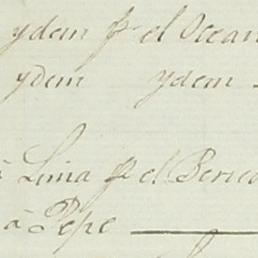 ydem pr el Ocean
ydem ydem
à Lima pr el Beric
à Pepe